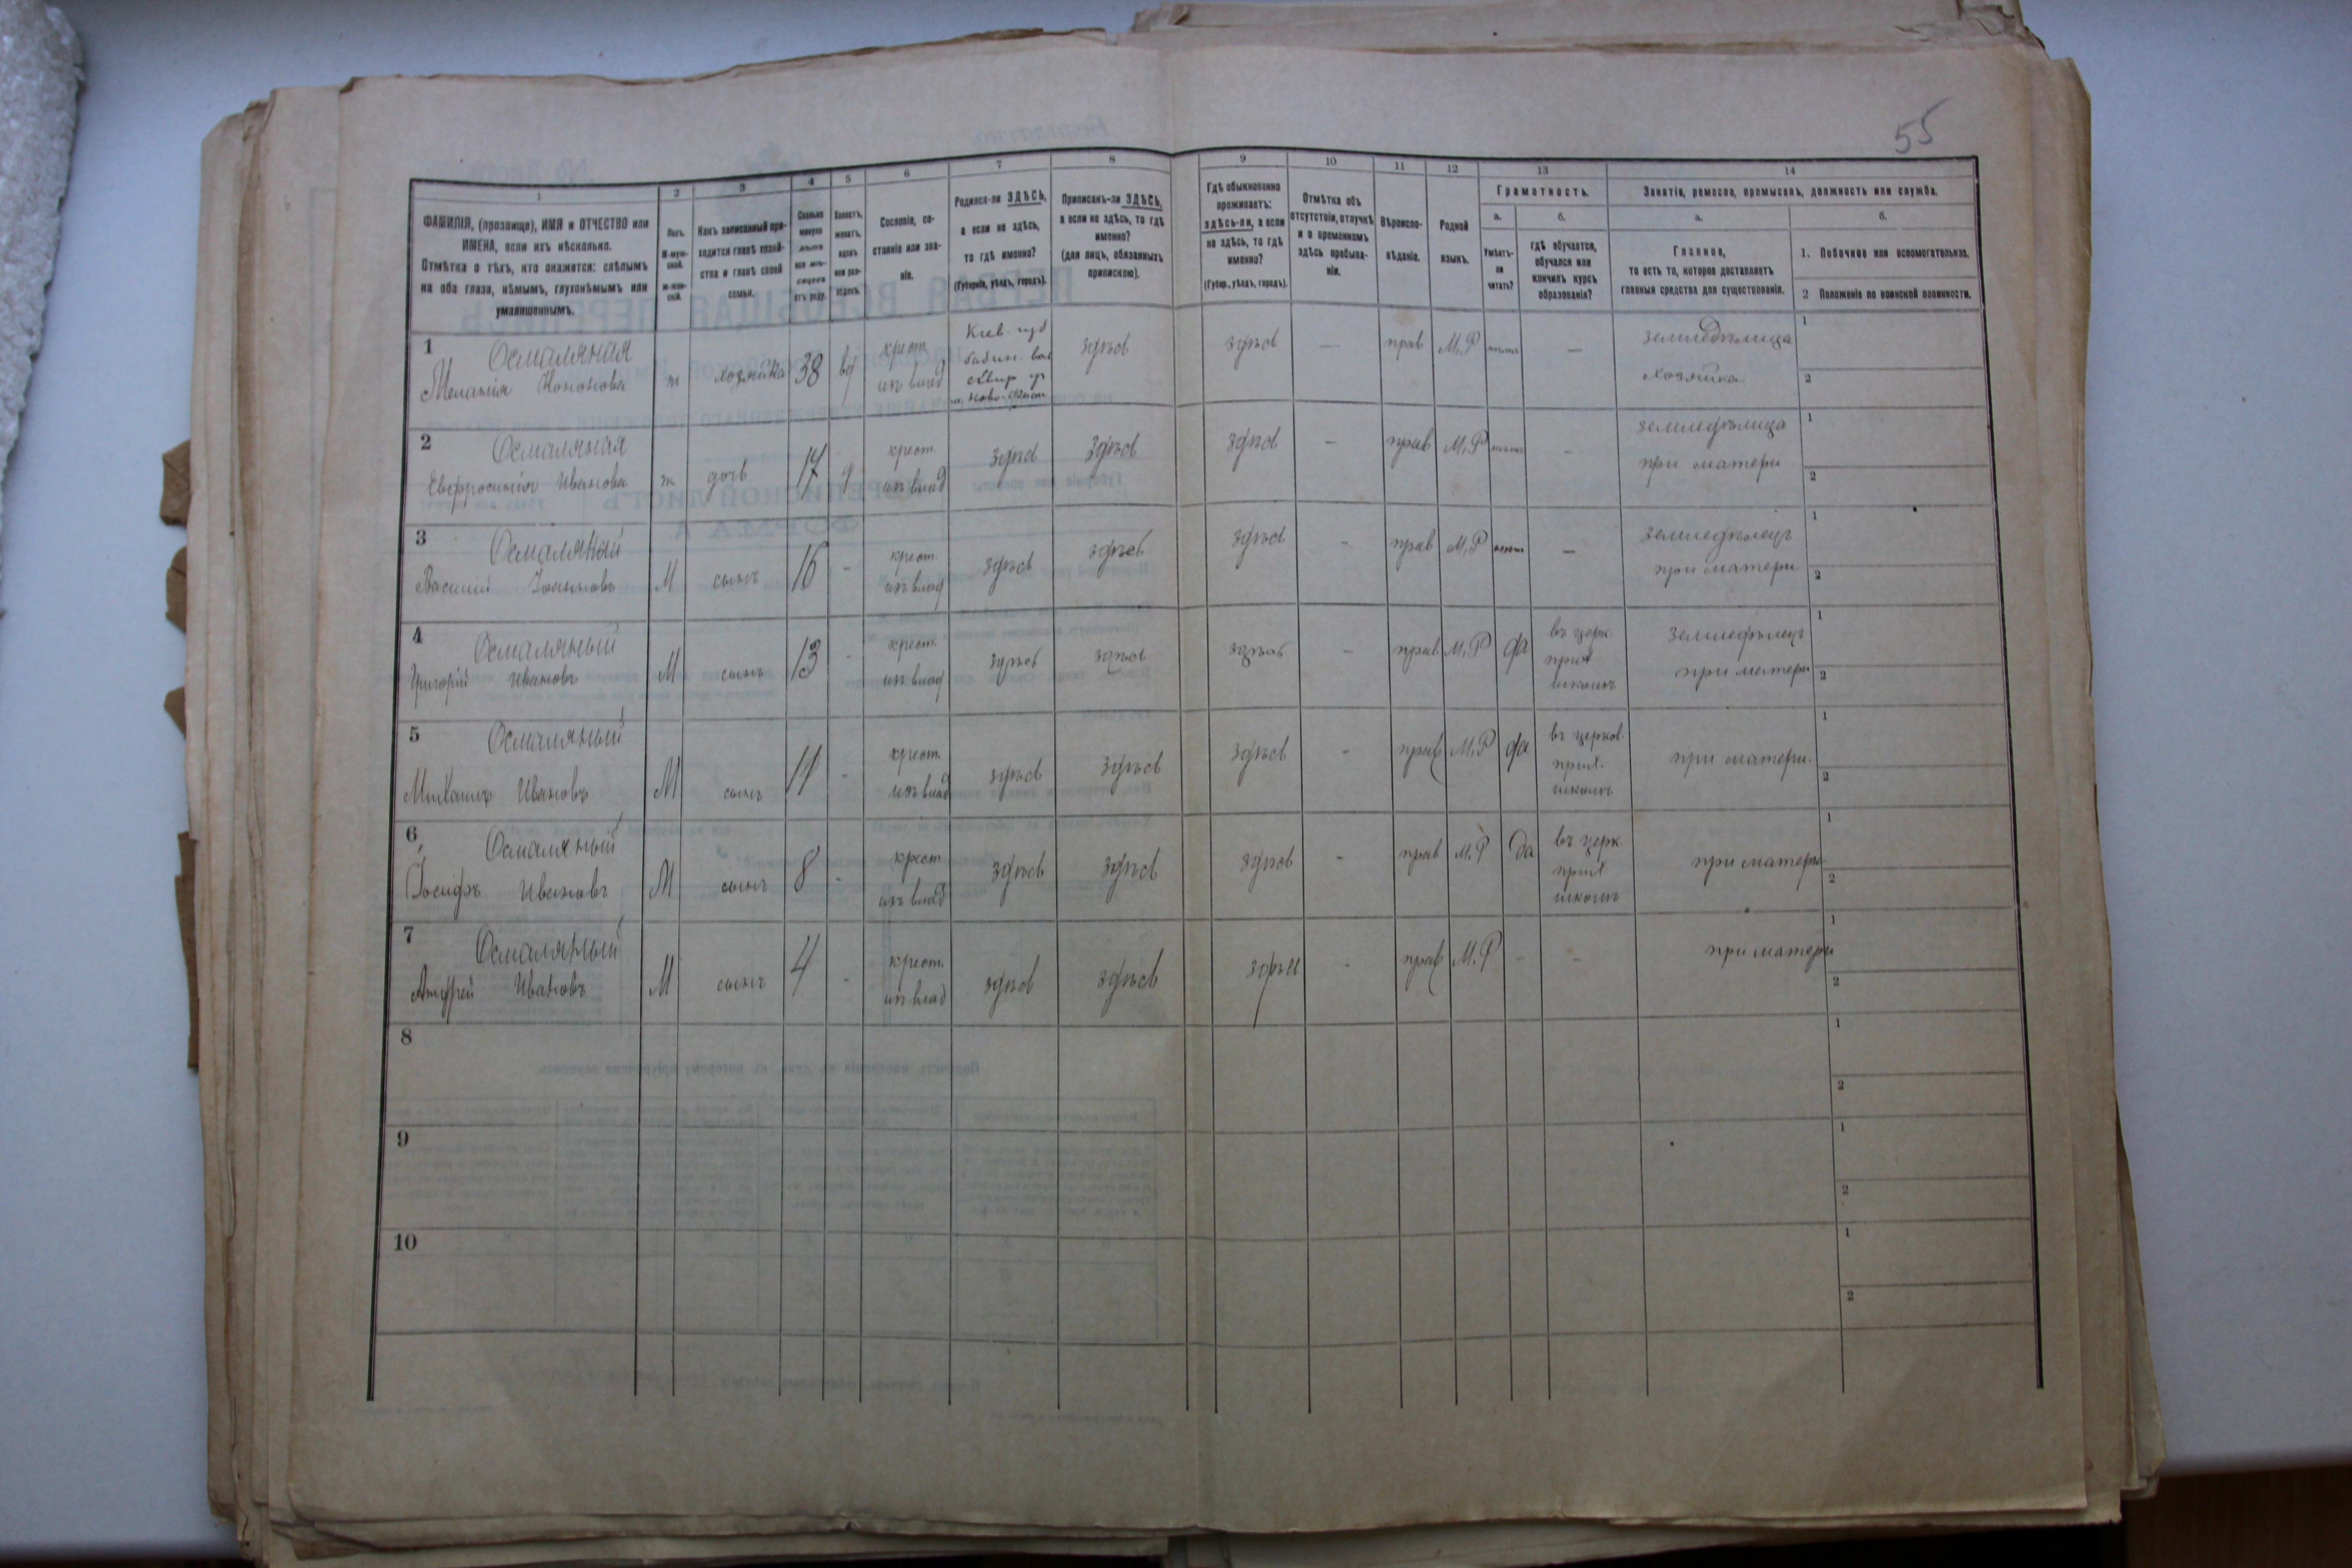 55
1
2
3
4
5
6
7
8
9
10
11
12
13
14
ФАМИЛІЯ, (прозвище), ИМЯ и ОТЧЕСТВО или
ИМЕНА, если ихъ нѣсколько.
Отмѣтка о тѣхъ, кто окажется: слѣпымъ
на оба глаза, нѣмымъ, глухонѣмымъ или
умалишеннымъ.
Полъ.
М-муж-
ской.
ж-жен-
скій.
Какъ записанный при-
ходится главѣ хозяй-
ства и главѣ своей
семьи.
Сколько
минуло
лѣтъ
или мѣ-
сяцевъ
отъ роду.
Холостъ,
женатъ,
вдовъ
или раз-
веденъ.
Сословіе, со-
стояніе или зва-
ніе.
Родился-ли ЗДѢСЬ,
а если не здѣсь,
то гдѣ именно?
(Губернія, уѣздъ, городъ).
Приписанъ-ли ЗДѢСЬ,
а если не здѣсь, то гдѣ
именно?
(для лицъ, обязанныхъ
припискою).
Гдѣ обыкновенно
проживаетъ:
здѣсь-ли, а если
не здѣсь, то гдѣ
именно?
(Губер., уѣздъ, городъ).
Отмѣтка объ
отсутствіи, отлучкѣ
и о временномъ
здѣсь пребыва-
ніи.
Вѣроиспо-
вѣданіе.
Родной
языкъ.
Грамотность.
а.
Умѣетъ-
ли
читать?
б.
гдѣ обучается,
обучался или
кончилъ курсъ
образованія?
Занятіе, ремесло, промыселъ, должность или служба.
а.
Главное,
то есть то, которое доставляетъ
главныя средства для существованія.
б.
1. Побочное или вспомогательное.
2 Положеніе по воинской повинности.
1 Осмаляная
Меланія Кононова ж хозяйка 38 вд крест. изъ влад Кіев. губ
сквир уѣ
здѣсь здѣсь — прав М.Р — земледѣлица
хозяйка
1
2
2 Осмаляная
Евфросинія Иванова ж дочь 17 д крест. изъ влад здѣсь здѣсь здѣсь — прав М.Р - земледѣлица
при матери
1
2
3 Осмаляный
Василій Іоанновъ М сынъ 16 - крест. изъ влад здѣсь здѣсь здѣсь - прав М.Р — земледѣлецъ
при матери
1
2
4 Осмаляный
Григорій Ивановъ М сынъ 13 - крест. изъ влад здѣсь здѣсь здѣсь - прав М.Р да въ церк.
прих
школѣ
земледѣлецъ
при матери
1
2
5 Осмаляный
Михаилъ Ивановъ М сынъ 11 - крест. изъ влад здѣсь здѣсь здѣсь - прав М.Р да въ церков.
прих.
школѣ
при матери.
1
2
6 Осмаляный
Іосифъ Ивановъ М сынъ 8 - крест. изъ влад здѣсь здѣсь здѣсь - прав М.Р да въ церк.
прих
школѣ
при матери
1
2
7 Осмаляный
Андрей Ивановъ М сынъ 4 - крест. изъ влад здѣсь здѣсь здѣсь - прав М.Р - - при матери
1
2
8
1
2
9
1
2
10
1
2